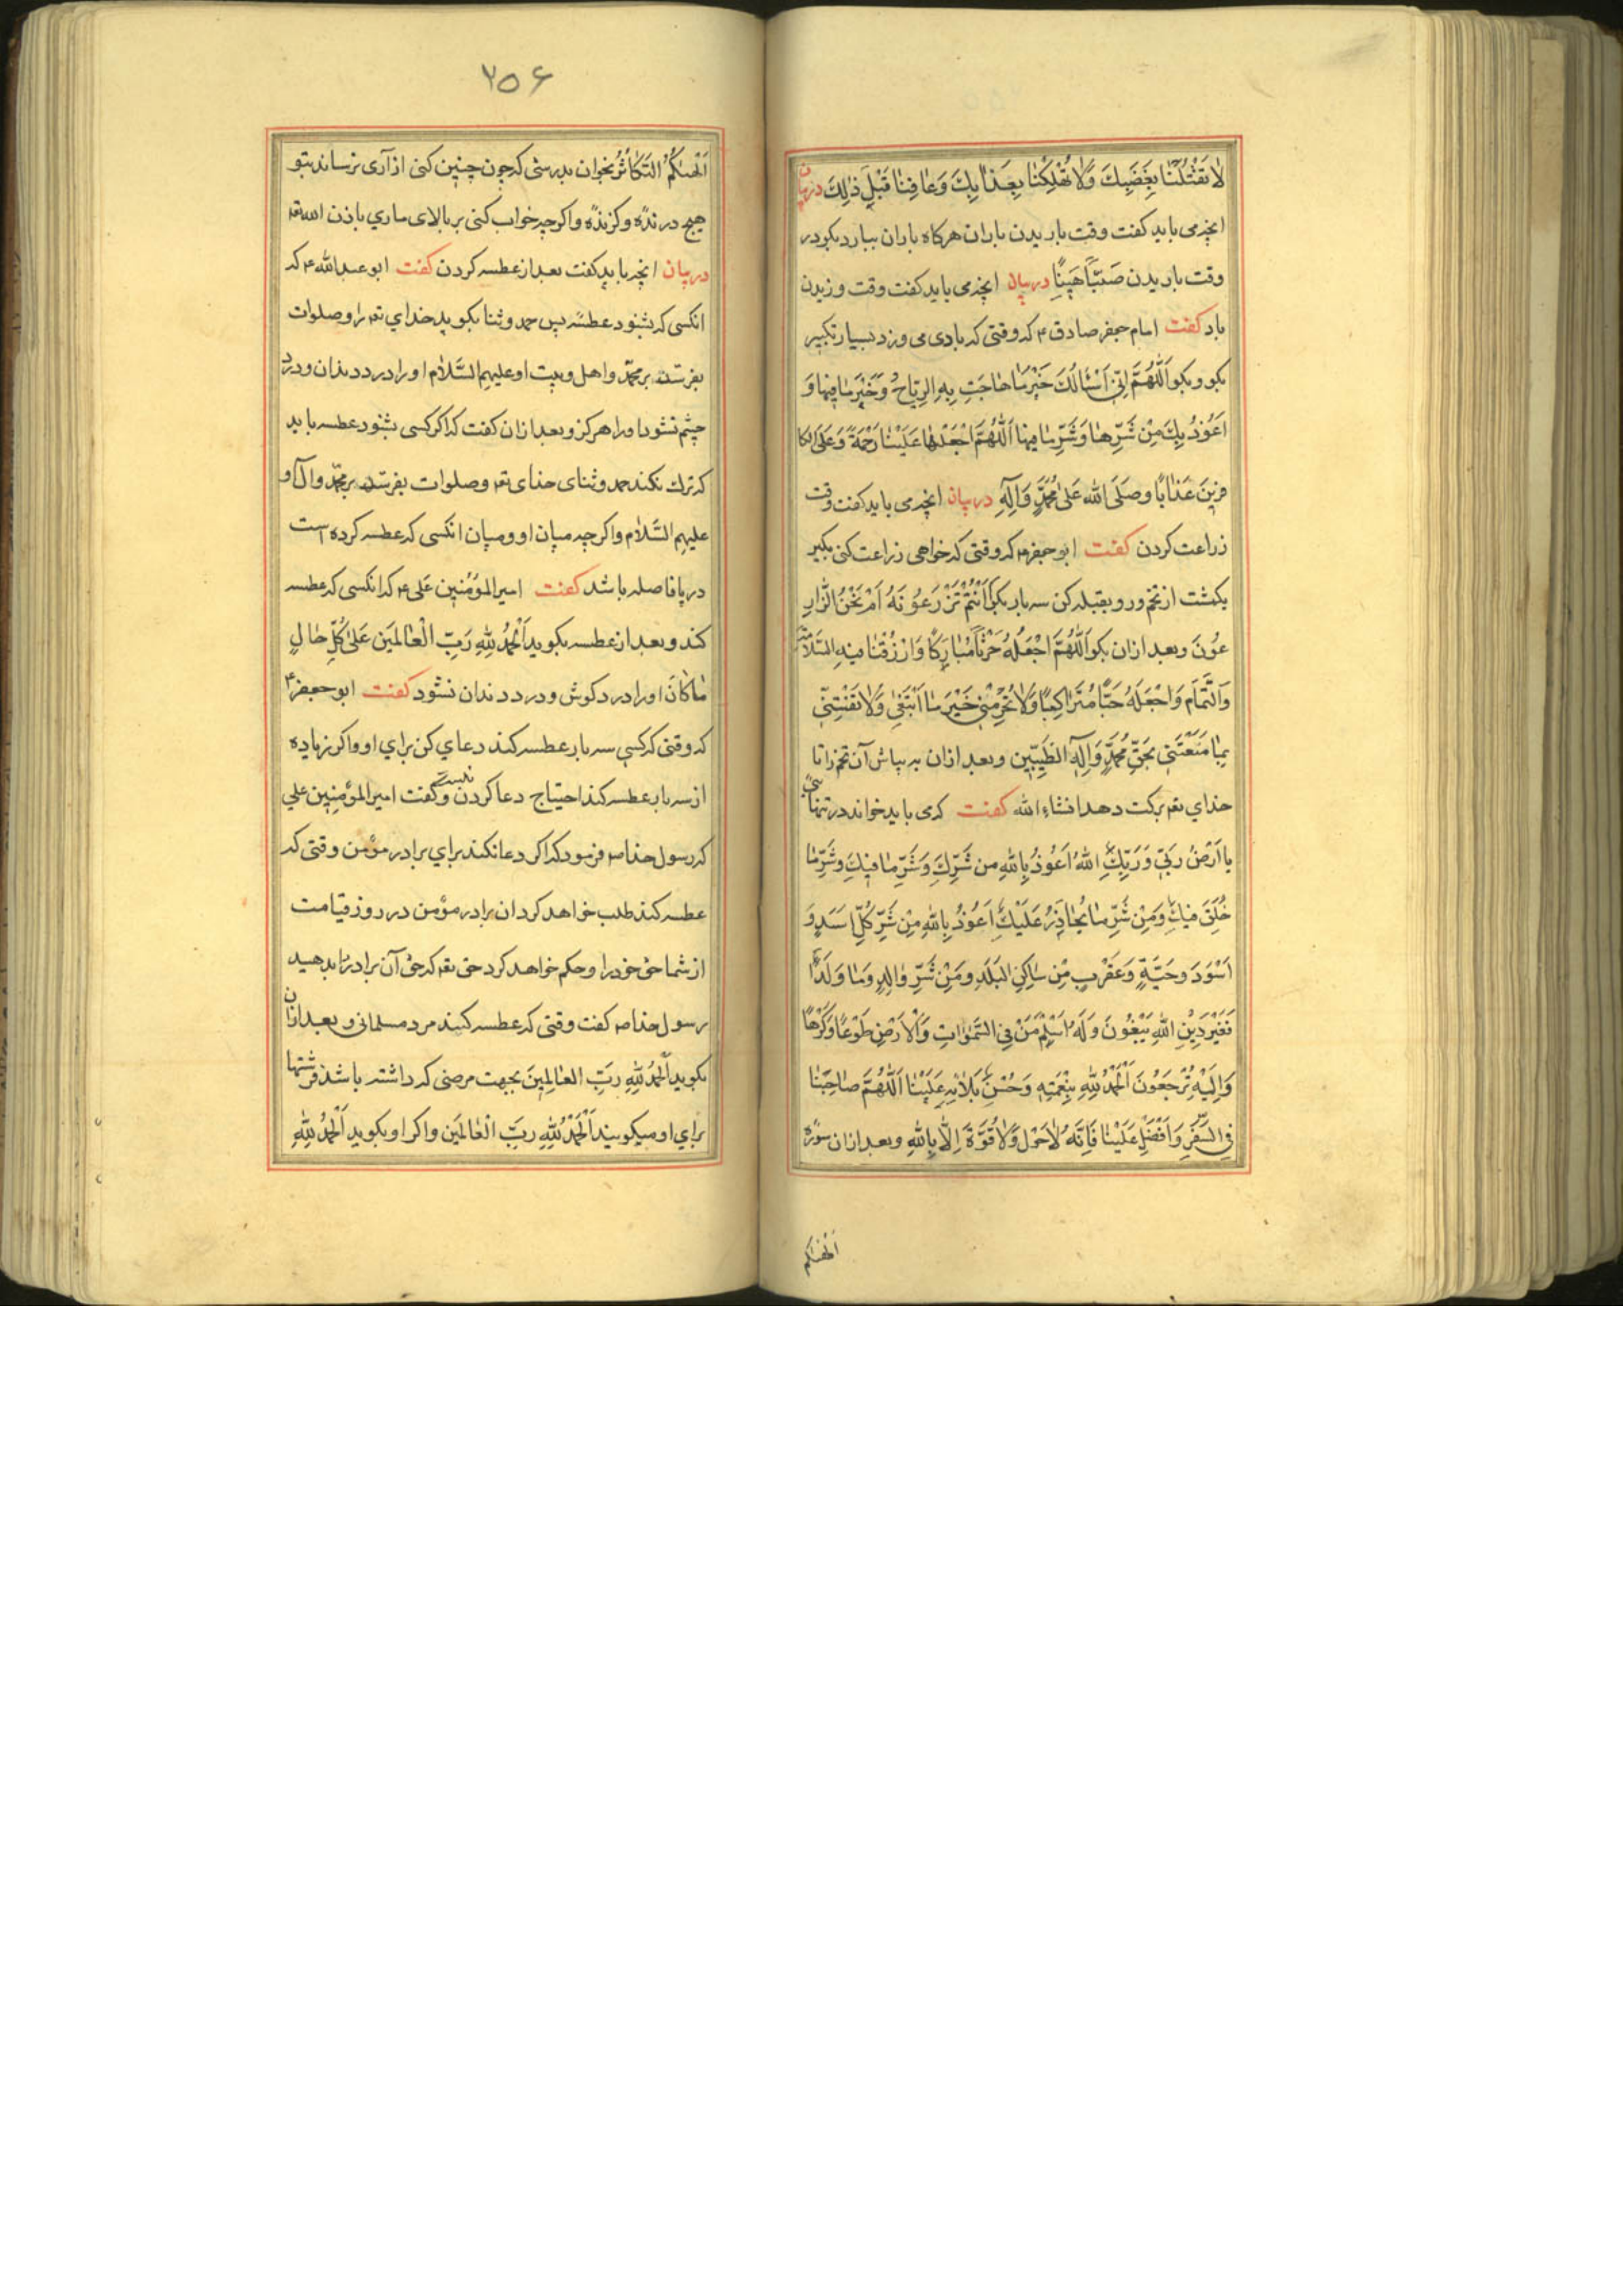 لا تَقْتُلْنا بِغَضَبِكَ وَلا تُهْلِكْنا بِعَذابِكَ وَعافِنا قَبْلَ ذٰلِكَ در بیان
انچه می باید کفت وقت باریدن باران هرکاه باران ببارد بکو در
وقت باریدن صَبّاً هَنِیئاً در بیان انچه می باید کفت وقت وزیدن
باد کفت امام جعفر صادق ع که وقتی که بادی می وزد بسیار تکبیر
بکو و بکو اَللّٰهُمَّ اِنّی اَسْئَالُكَ خَیْرَ ما هاجَتِ بِهِ الرِّیاحُ وَخَیْرَ ما فِیها وَ
اَعُوذُ بِكَ مِنْ شَرِّها وَشَرِّ ما فیها اَللّٰهُمَّ اجْعَلْها عَلَیْنا رَحْمَةً وَعَلَی الکا
فِرینَ عَذاباً وصَلَّی الله عَلیٰ مُحَمَّدٍ وَآلِهِ در بیان انچه می باید کفت وقت
زراعت کردن کفت ابو جعفر ع که وقتی که خواهی زراعت کنی بکیر
یکمشت از تخم و رو بقبله کن سه بار بکو ءَاَنْتُمْ تَزْرَعُونَهُ اَمْ نَحْنُ الزّارِ
عُونَ وبعد ازان بکو اَللّٰهُمَّ اجْعَلْهُ حَرْثاً مُبارَکاً وَارْزُقْنا فیهِ السَّلامَةَ
وَالتَّمامَ وَاجْعَلْهُ حَبّاً مُتَراکِباً وَلا تُحْرِمْنی خَیْرَ ما اَبْتَغی وَلا تَفْتِنّی
بِما مَتَّعْتَنی بِحَقِّ مُحَمَّدٍ وَآلِهِ الطَّیِّبین وبعد ازان به پاش آن تخم را تا
خدای تعه برکت دهد انشاء الله کفت که می باید خواند در تنهائی
یا اَرْضُ رَبّی وَرَبُّكِ اللهُ اَعُوذُ بِاللهِ من شَرِّكِ وَشَرِّ ما فیكِ وشَرِّ ما
خُلِقَ فیكِ وَمِنْ شَرِّ ما یُحاذَرُ عَلَیْكِ اَعُوذُ بِاللهِ مِنْ شَرِّ کُلِّ اَسَدٍ وَ
اَسْوَدَ وحَیَّةٍ وَعَقْرَبٍ مِن ساکِنِ البَلَدِ ومِنْ شَرِّ والِدٍ وَما وَلَدَ اَ
فَغَیْرَ دِینِ اللهِ یَبْغُونَ وَلَهُ اَسْلَمَ مَنْ فِی السَّمٰواتِ وَالْاَرْضِ طَوْعاً وَکَرْهاً
وَاِلَیْهِ تُرْجَعُونَ اَلْحَمْدُ لِلّٰهِ بِنِعْمَتِهِ وَحُسْنِ بَلائِهِ عَلَیْنا اَللّٰهُمَّ صاحِبْنا
فِی السَّفَرِ وَاَفْضِلْ عَلَیْنا فَاِنَّهُ لا حَوْلَ وَلا قُوَّةَ اِلّا بِاللهِ وبعد ازان سورة
اَلْهٰیکُم
۲۵۶
اَلْهٰیکُمُ التَّکاثُرُ بخوان بدرستی که چون چنین کنی از آری نرساند بتو
هیچ درنده وکزنده واکرچه خواب کنی بر بالای ماری باذن الله تعه
در بیان انچه باید کفت بعد از عطسه کردن کفت ابو عبدالله ع که
انکسی که بشنود عطسه پس حمد وثنا بکوید خدای تعه را وصلوات
بفرستد بر محمّد واهل وبیت او علیهم السَّلام او را درد دندان ودرد
چشم نشود او را هرکز وبعد ازان کفت که اکر کسی بشنود عطسه باید
که ترك نکند حمد وثنای خدای تعه وصلوات بفرستد بر محمّد وآل او
علیهم السَّلام واکرچه میان او ومیان انکسی که عطسه کرده است
دریا فاصله باشد کفت امیرالمؤمنین علی ع که انکسی که عطسه
کند وبعد از عطسه بکوید اَلْحَمْدُ لِلّٰهِ رَبِّ الْعالَمین عَلیٰ کُلِّ حالٍ
ما کانَ او را درد کوش ودرد دندان نشود کفت ابو جعفر ع
که وقتی که کسی سه بار عطسه کند دعای کن برای او واکر زیاده
از سه بار عطسه کند احتیاج دعا کردن نیست وکفت امیرالمؤمنین علی
که رسول خدا ص فرمود که اکر دعا نکند برای برادر مؤمن وقتی که
عطسه کند طلب خواهد کرد ان برادر مؤمن در روز قیامت
از شما حق خود را وحکم خواهد کرد حق تعه که حق آن برادر را بدهید
رسول خدا ص کفت وقتی که عطسه کند مرد مسلمانی وبعد ازان
بکوید اَلْحَمْدُ لِلّٰهِ رَبِّ العالمینَ بجهت مرضی که داشته باشد فرشتها
برای او میکویند اَلْحَمْدُ لِلّٰهِ رَبِّ الْعالَمین واکر او بکوید اَلْحَمْدُ لِلّٰهِ